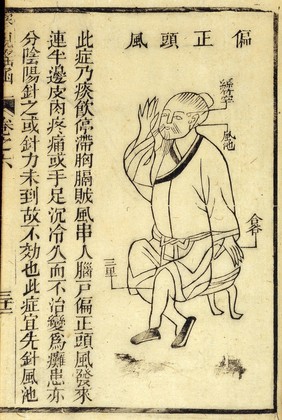 偏正頭風
絲竹空
風池
合谷
三里
此症乃痰飲停滯胸膈賊風串人腦戶偏正頭風發來
連半邊皮肉疼痛或手足沉冷久而不治變爲癱患亦
分陰陽針之或針力未到故不効也此症宜先針風池
卷之六